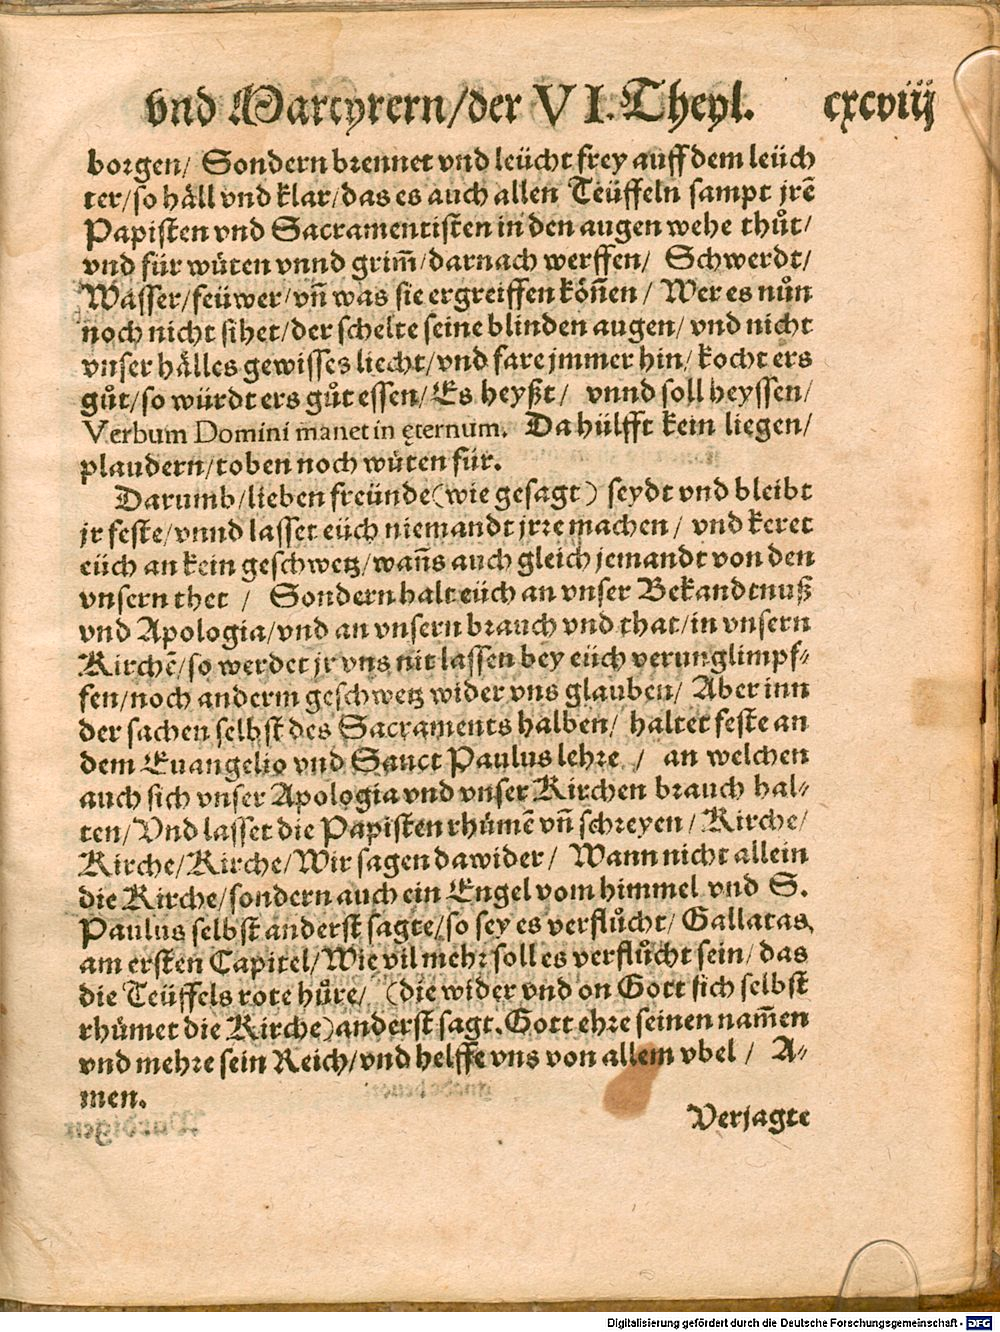 vnd Martyrern/der VI. Theyl. cxcviij
borgen/ Sondern brennet vnd leücht frey auff dem leüch
ter/so håll vnd klar/das es auch allen Teüffeln sampt jrẽ
Papisten vnd Sacramentisten in den augen wehe thůt/
vnd für wüten vnnd grim̃/darnach werffen/ Schwerdt/
Wasser/feüwer/vñ was sie ergreiffen köñen/ Wer es nůn
noch nicht sihet/der schelte seine blinden augen/ vnd nicht
vnser hålles gewisses liecht/vnd fare jmmer hin/ kocht ers
gůt/so würdt ers gůt essen/ Es heyßt/ vnnd soll heyssen/
Verbum Domini manet in ęternum. Da hülfft kein liegen/
plaudern/toben noch wüten für.
Darumb/lieben freünde(wie gesagt) seydt vnd bleibt
jr feste/vnnd lasset eüch niemandt jrre machen/ vnd keret
eüch an kein geschwetz/wañs auch gleich jemandt von den
vnsern thet/ Sondern halt eüch an vnser Bekandtnuß
vnd Apologia/vnd an vnsern brauch vnd that/in vnsern
Kirchẽ/so werdet jr vns nit lassen bey eüch verunglimpf-
fen/noch anderm geschwetz wider vns glauben/ Aber inn
der sachen selbst des Sacraments halben/ haltet feste an
dem Euangelio vnd Sanct Paulus lehre/ an welchen
auch sich vnser Apologia vnd vnser Kirchen brauch hal-
ten/Vnd lasset die Papisten rhümẽ vñ schreyen/ Kirche/
Kirche/Kirche/Wir sagen dawider/ Wann nicht allein
die Kirche/sondern auch ein Engel vom himmel vnd S.
Paulus selbst anderst sagte/so sey es verflůcht/ Gallatas
am ersten Capitel/Wie vil mehr soll es verflůcht sein/ das
die Teüffels rote hůre/ (die wider vnd on Gott sich selbst
rhümet die Kirche)anderst sagt. Gott ehre seinen nam̃en
vnd mehre sein Reich/vnd helffe vns von allem vbel/ A-
men.
Verjagte
Digitalisierung gefördert durch die Deutsche Forschungsgemeinschaft - DFG